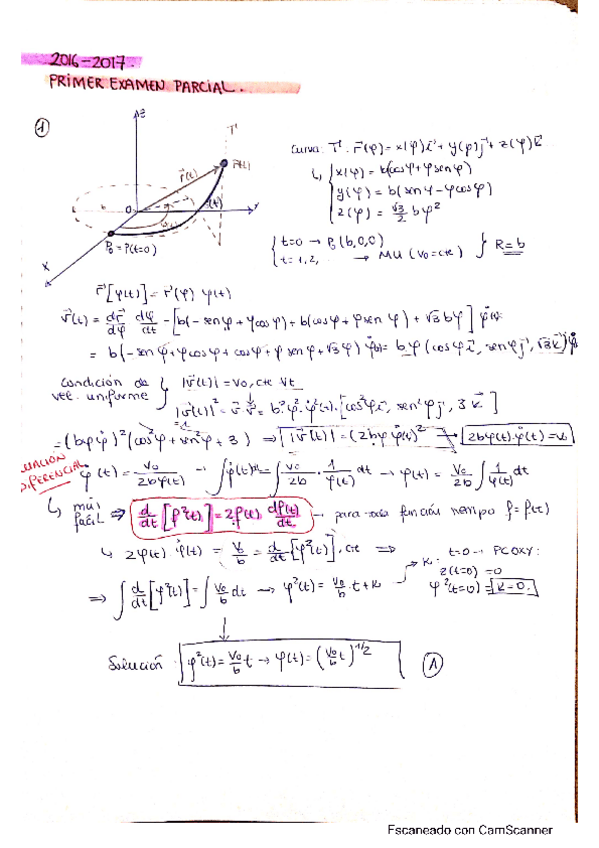 2016-2017.
PRIMER EXAMEN PARCIAL.
①
z
T
r⃗(t)
P(t)
O
y
x
P₀ ≡ P(t=0)
Curva T: r⃗(φ) = x(φ)i⃗ + y(φ)j⃗ + z(φ)k⃗
x(φ) = b(cosφ + φ senφ)
y(φ) = b(senφ - φcosφ)
z(φ) = √3/2 bφ²
t=0 → P₀(b,0,0)
t=1,2, → MU (v₀=cte) } R=b
r⃗[φ(t)] = r⃗(φ) φ(t)
v⃗(t) = dr⃗/dφ dφ/dt = [b(-senφ + φcosφ) + b(cosφ + φsenφ) + √3bφ] φ̇(t)
= b(-senφ + φcosφ + cosφ + φ senφ + √3φ) φ̇(t) = bφ (cosφi⃗, senφj⃗, √3k⃗) φ̇
Condición de vel. uniforme
|v⃗(t)| = v₀, cte ∀t
|v⃗(t)|² = v⃗·v⃗ = b²·φ²·φ̇²(t)·[cos²φi⃗, sen²φj⃗, 3k⃗]
= (bφφ̇)²(cos²φ + sen²φ + 3) ⇒ |v⃗(t)| = (2bφφ̇(t))² → 2bφ(t)·φ̇(t) = v₀
ECUACIÓN DIFERENCIAL
φ̇(t) = v₀/2bφ(t) → ∫φ̇(t)dt = ∫v₀/2b · 1/φ(t) dt → φ(t) = v₀/2b ∫1/φ(t) dt
↳ muy fácil ⇒ d/dt [f²(t)] = 2f(t) df(t)/dt → para toda función tiempo f = f(t)
↳ 2φ(t)·φ̇(t) = v₀/b = d/dt [φ²(t)], cte ⇒
K: t=0 → P ⊂ OXY:
z(t=0) = 0
φ²(t=0) = K=0.
⇒ ∫ d/dt [φ²(t)] = ∫ v₀/b dt → φ²(t) = v₀/b t + K
Solución φ²(t) = v₀/b t → φ(t) = (v₀/b t)^1/2 ①
Escaneado con CamScanner